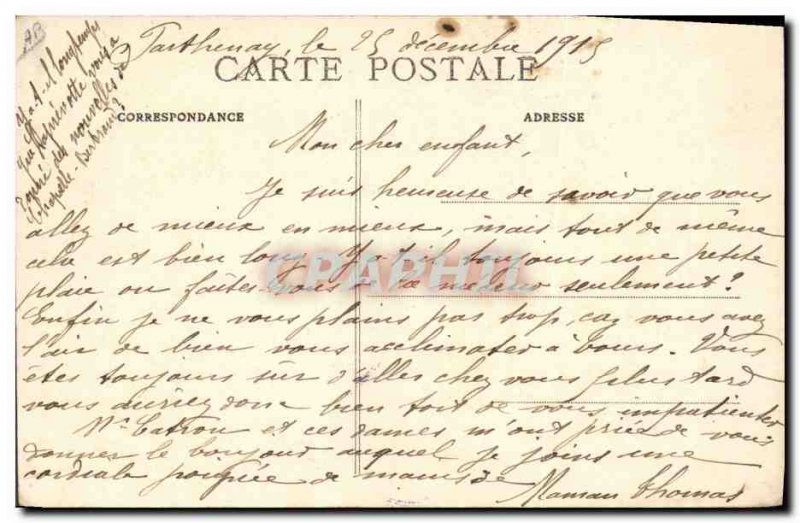 Parthenay, le 25 décembre 1915
CARTE POSTALE
CORRESPONDANCE
ADRESSE
Mon cher enfant,
Je suis heureuse de savoir que vous
allez de mieux en mieux, mais tout de même
cela est bien long. Y a-t-il toujours une petite
plaie ou faites-vous de la seulement?
Enfin je ne vous plains pas trop, car vous avez
l'air de bien vous acclimater à Tours. Vous
êtes toujours sûr d'aller chez vous plus tard
vous auriez donc bien tort de vous impatienter
Mr Catron et ces dames m'ont priée de vous
donner le bonjour auquel je joins une
cordiale poignée de mains de
Maman Thomas
Y a-t-il longtemps
que propriétaire vous a
donné des nouvelles de
Chapelle-Bertrand?
AP
CPAPHIL